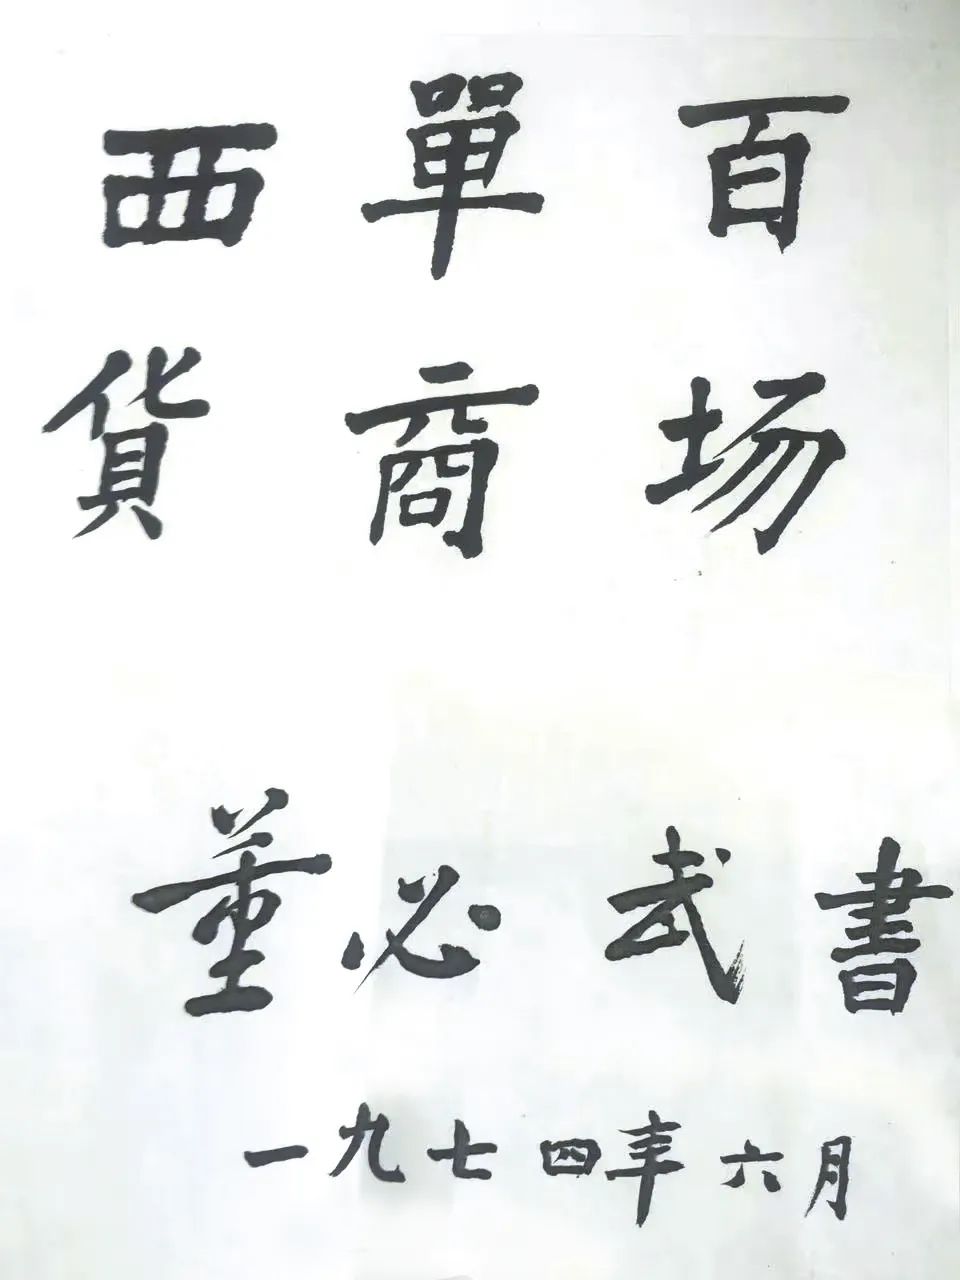 西單百
貨商场
董必武書
一九七四年六月